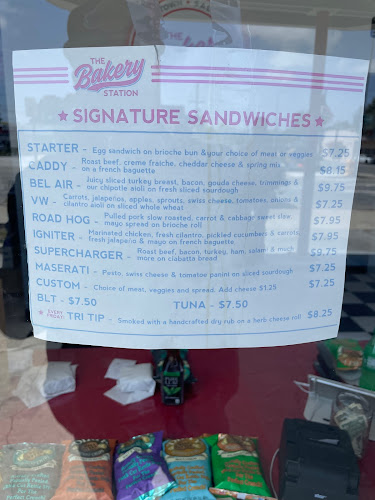 THE
Bakery
STATION
★ SIGNATURE SANDWICHES ★
STARTER - Egg sandwich on brioche bun & your choice of meat or veggies $7.25
CADDY - Roast beef, creme fraiche, cheddar cheese & spring mix
on a french baguette $8.15
BEL AIR - Juicy sliced turkey breast, bacon, gouda cheese, trimmings &
our chipotle aioli on fresh sliced sourdough $9.75
VW - Carrots, jalapeños, apples, sprouts, swiss cheese, tomatoes, onions &
cilantro aioli on sliced whole wheat $7.25
ROAD HOG - Pulled pork slow roasted, carrot & cabbage sweet slaw,
mayo spread on brioche roll $7.95
IGNITER - Marinated chicken, fresh cilantro, pickled cucumbers & carrots,
fresh jalapeño & mayo on french baguette $7.95
SUPERCHARGER - Roast beef, bacon, turkey, ham, salami & much
more on ciabatta bread $9.75
MASERATI - Pesto, swiss cheese & tomatoe panini on sliced sourdough $7.25
CUSTOM - Choice of meat, veggies and spread. Add cheese $1.25 $7.25
BLT - $7.50 TUNA - $7.50
★ EVERY FRIDAY! TRI TIP - Smoked with a handcrafted dry rub on a herb cheese roll $8.25